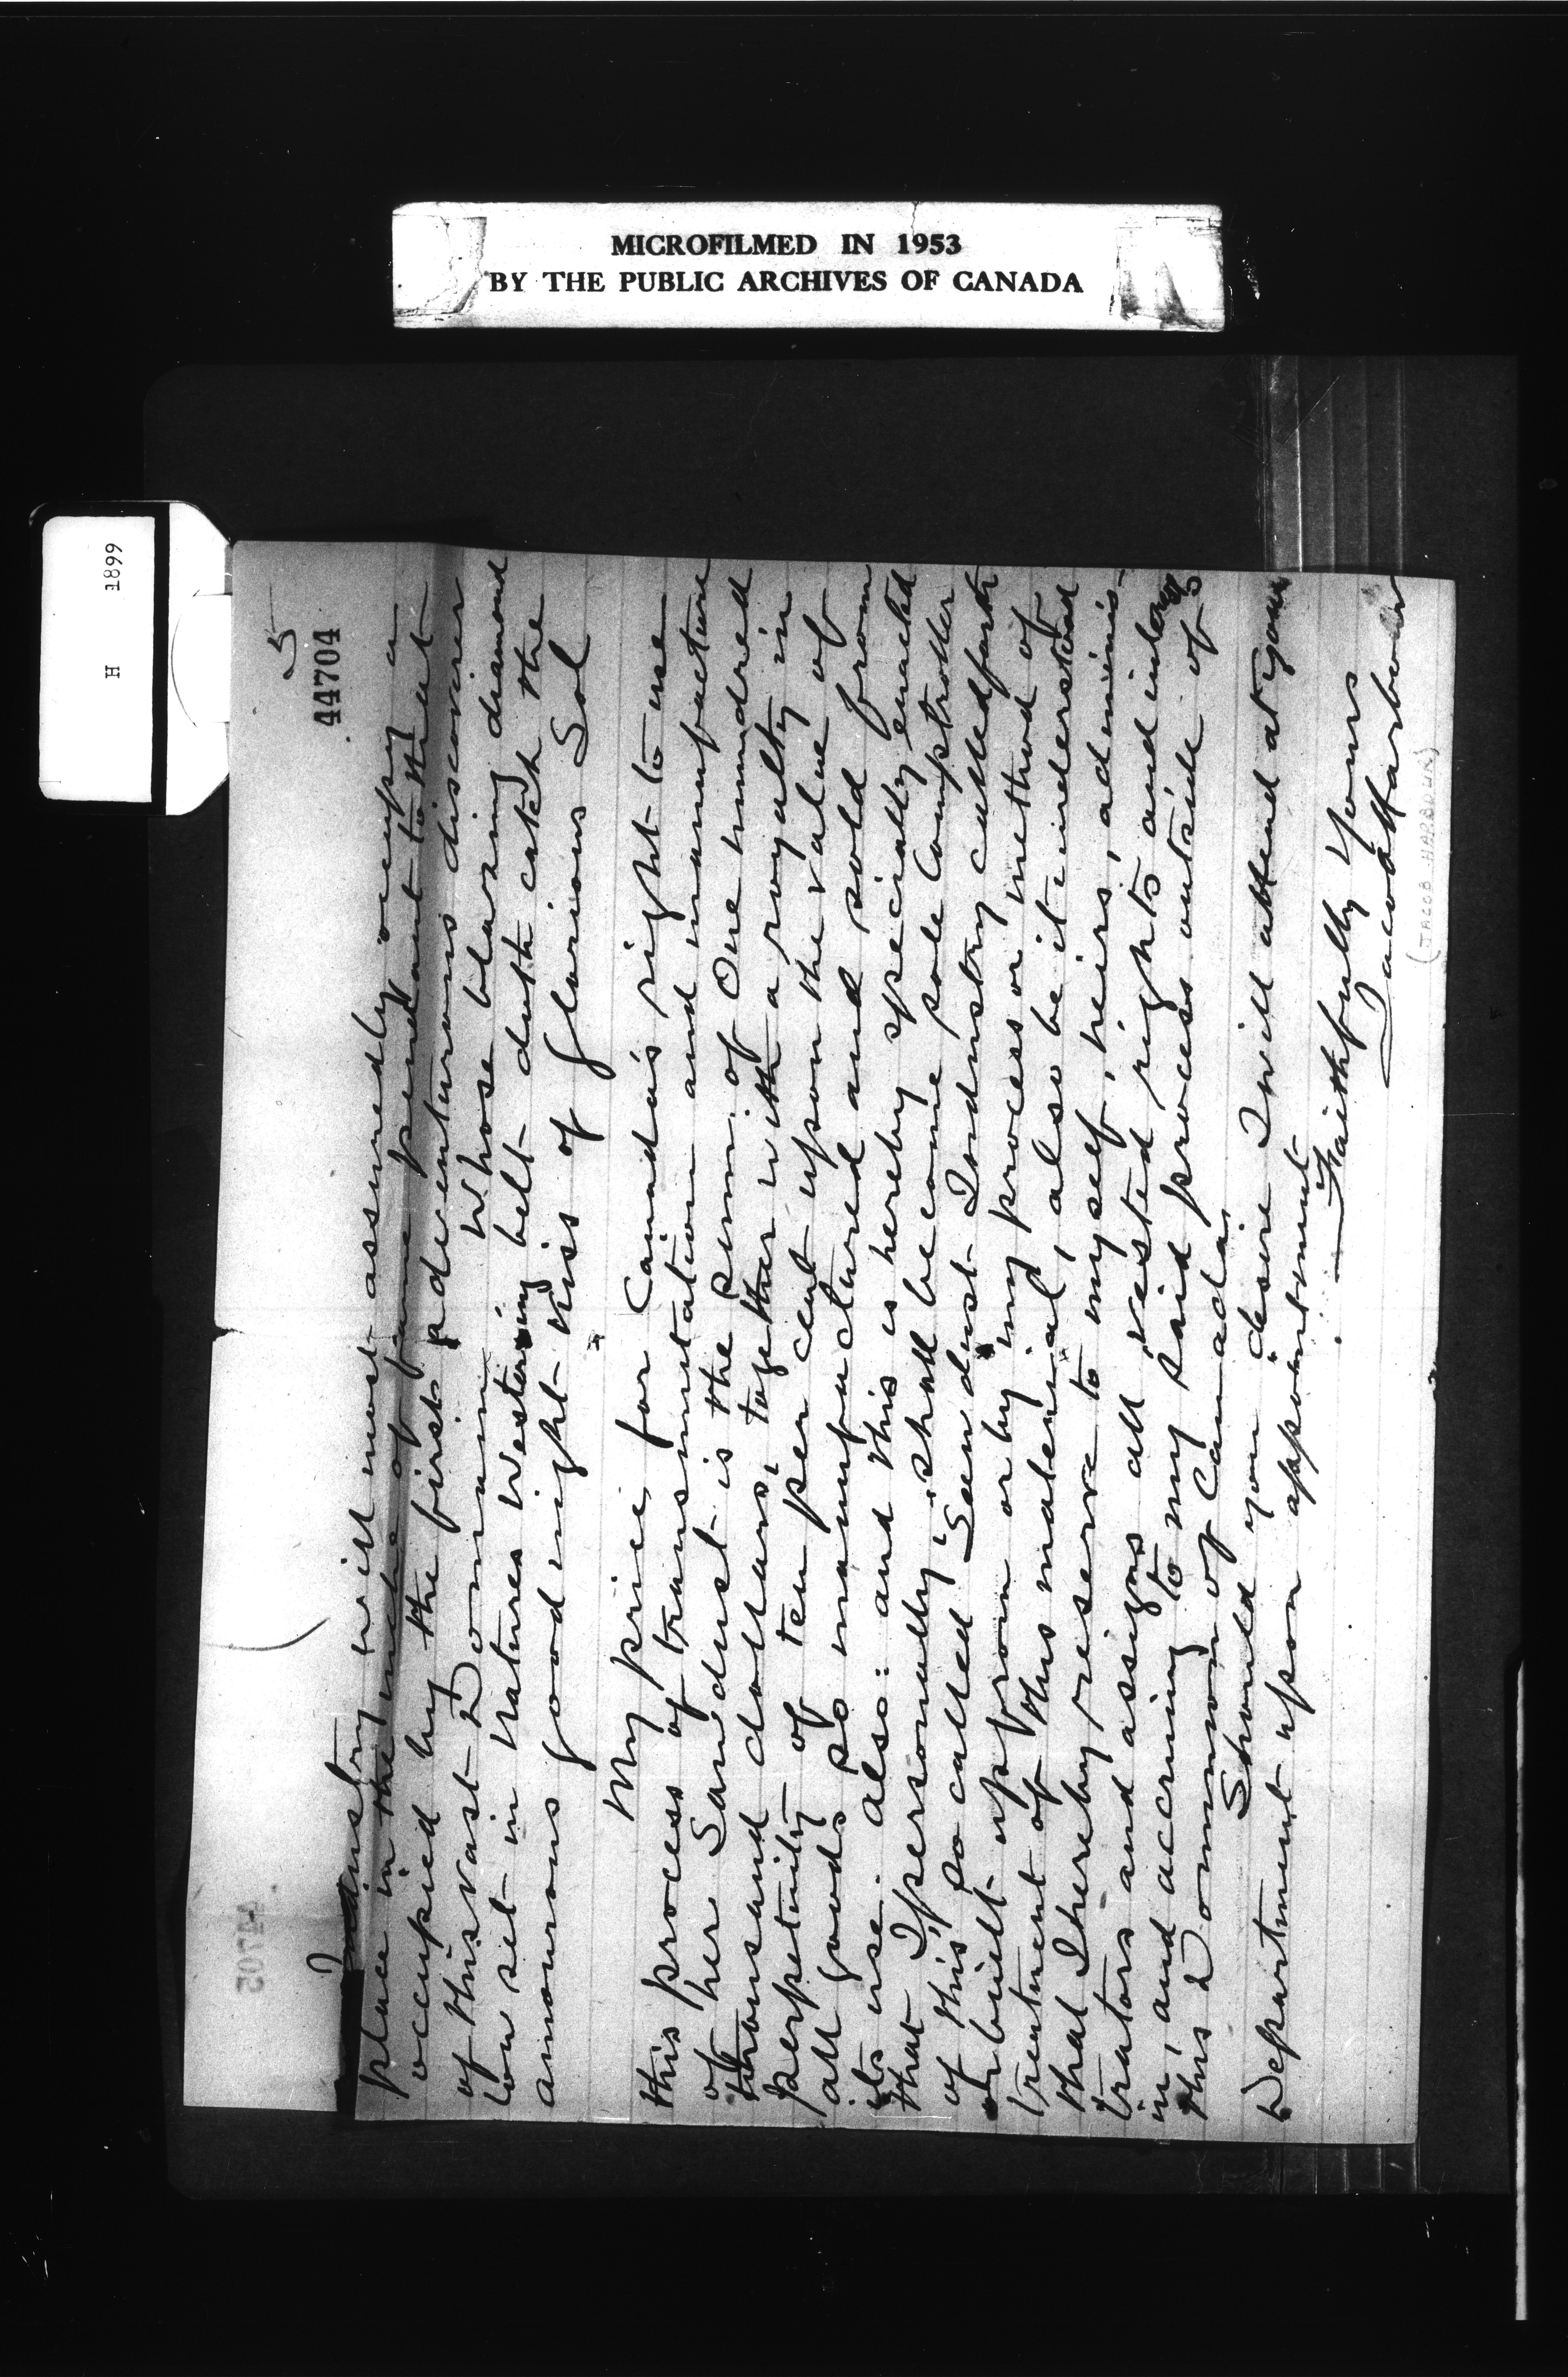 MICROFILMED IN 1953
BY THE PUBLIC ARCHIVES OF CANADA
H 1899
5
44704
Industry will most assuredly occupy a
place in the niche of fame pendant to that
occupied by the first adventurous discoverer
of this vast Dominion, whose blazing diamond
low set in natures Westering belt doth catch the
amourous good night kiss of glorious Sol
My price for Canada's right to use
this process of transmutation and manufacture
of her Sawdust is the sum of One hundred
thousand dollars, together with a royalty in
perpetuity of ten per cent upon the value of
all goods so manufactured and sold from
its use. also: and this is hereby specially enacted
that I personally shall become sole Comptroller
of this so called Sawdust Industry called forth
or built up from or by my process or method of
treatment of this material, also be it understood
that I hereby reserve to myself, heirs, adminis-
trators and assigns all vested rights and interests
in, and accruing to my said process outside of
this Dominion of Canada.
Should you desire I will attend at your
Department upon appointment
Faithfully Yours
Jacob Harbown
(JACOB HARBOWN)